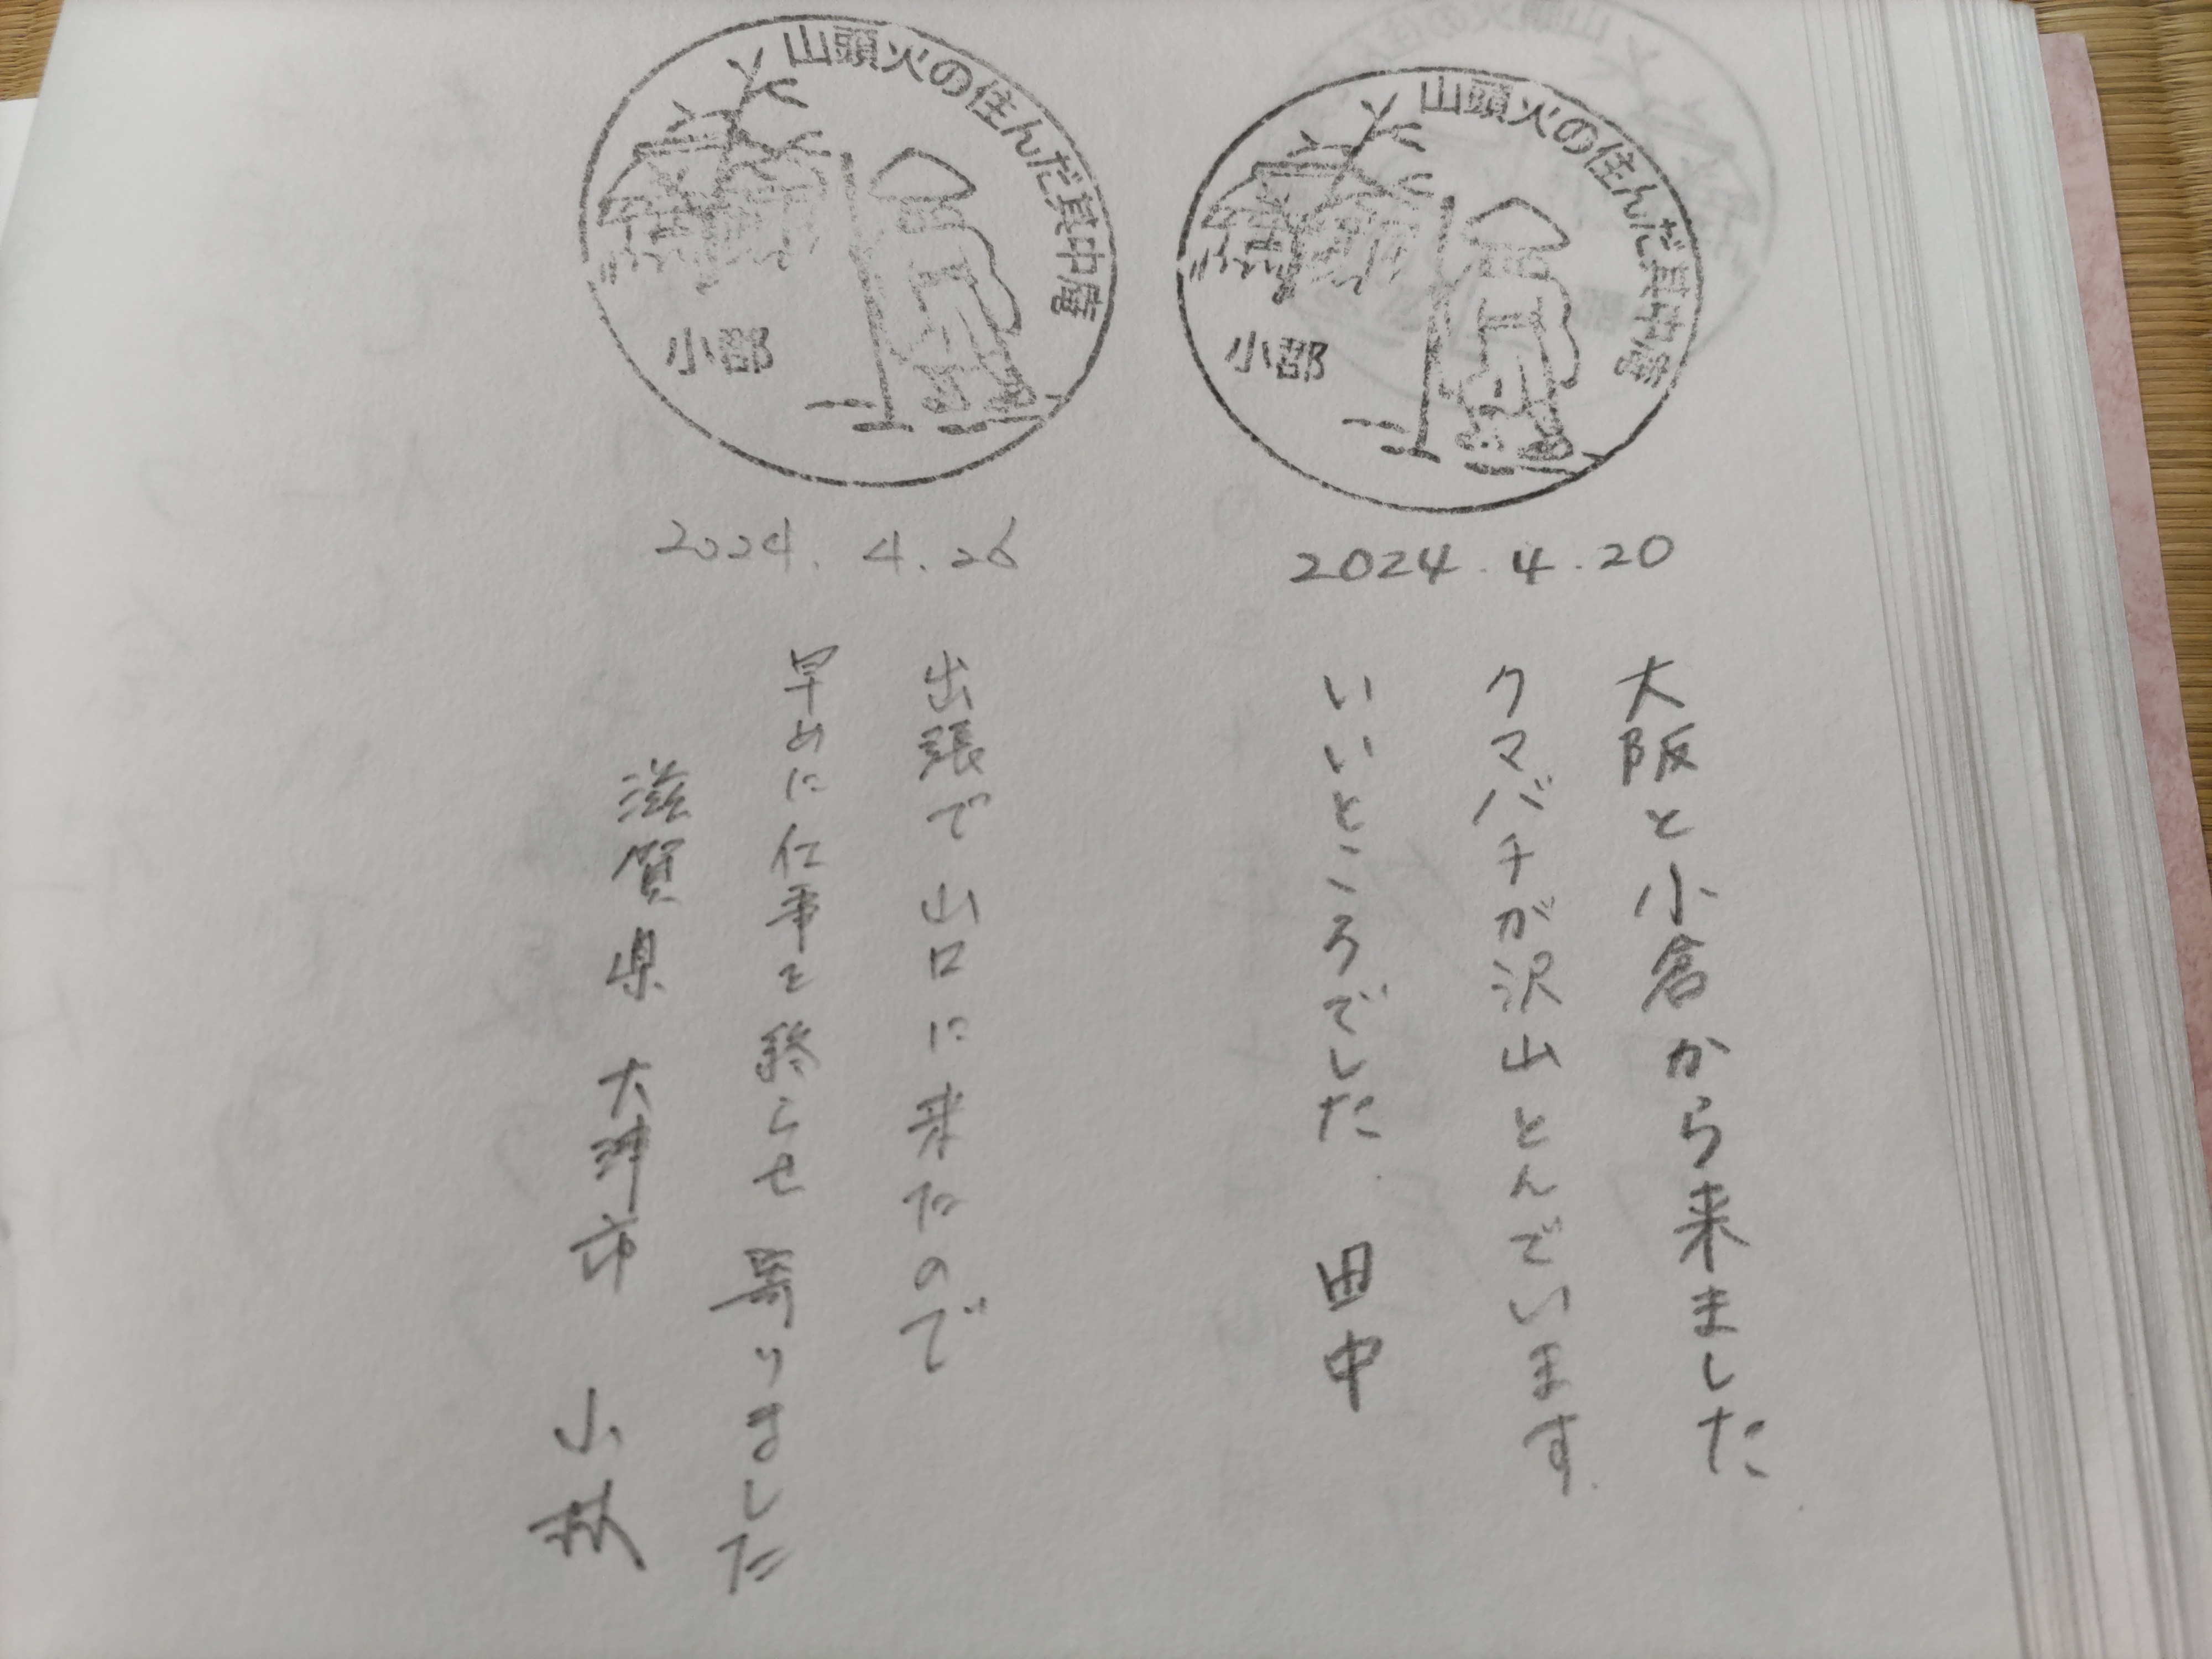 山頭火の住んだ其中庵
小郡
2024.4.20
大阪と小倉から来ました
クマバチが沢山とんでいます.
いいところでした. 田中
山頭火の住んだ其中庵
小郡
2024.4.26
出張で山口に来たので
早めに仕事を終らせ寄りました
滋賀県 大津市 小林